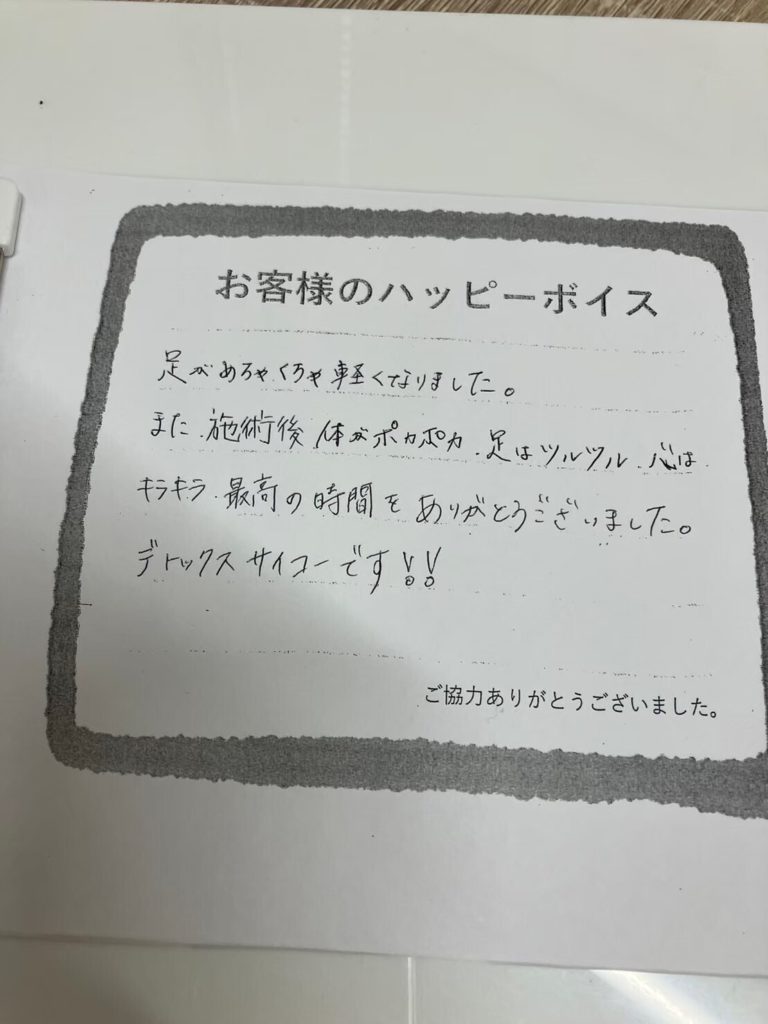 お客様のハッピーボイス
足がめちゃくちゃ軽くなりました。
また、施術後、体がポカポカ、足はツルツル、心は
キラキラ、最高の時間をありがとうございました。
デトックスサイコーです!!
ご協力ありがとうございました。